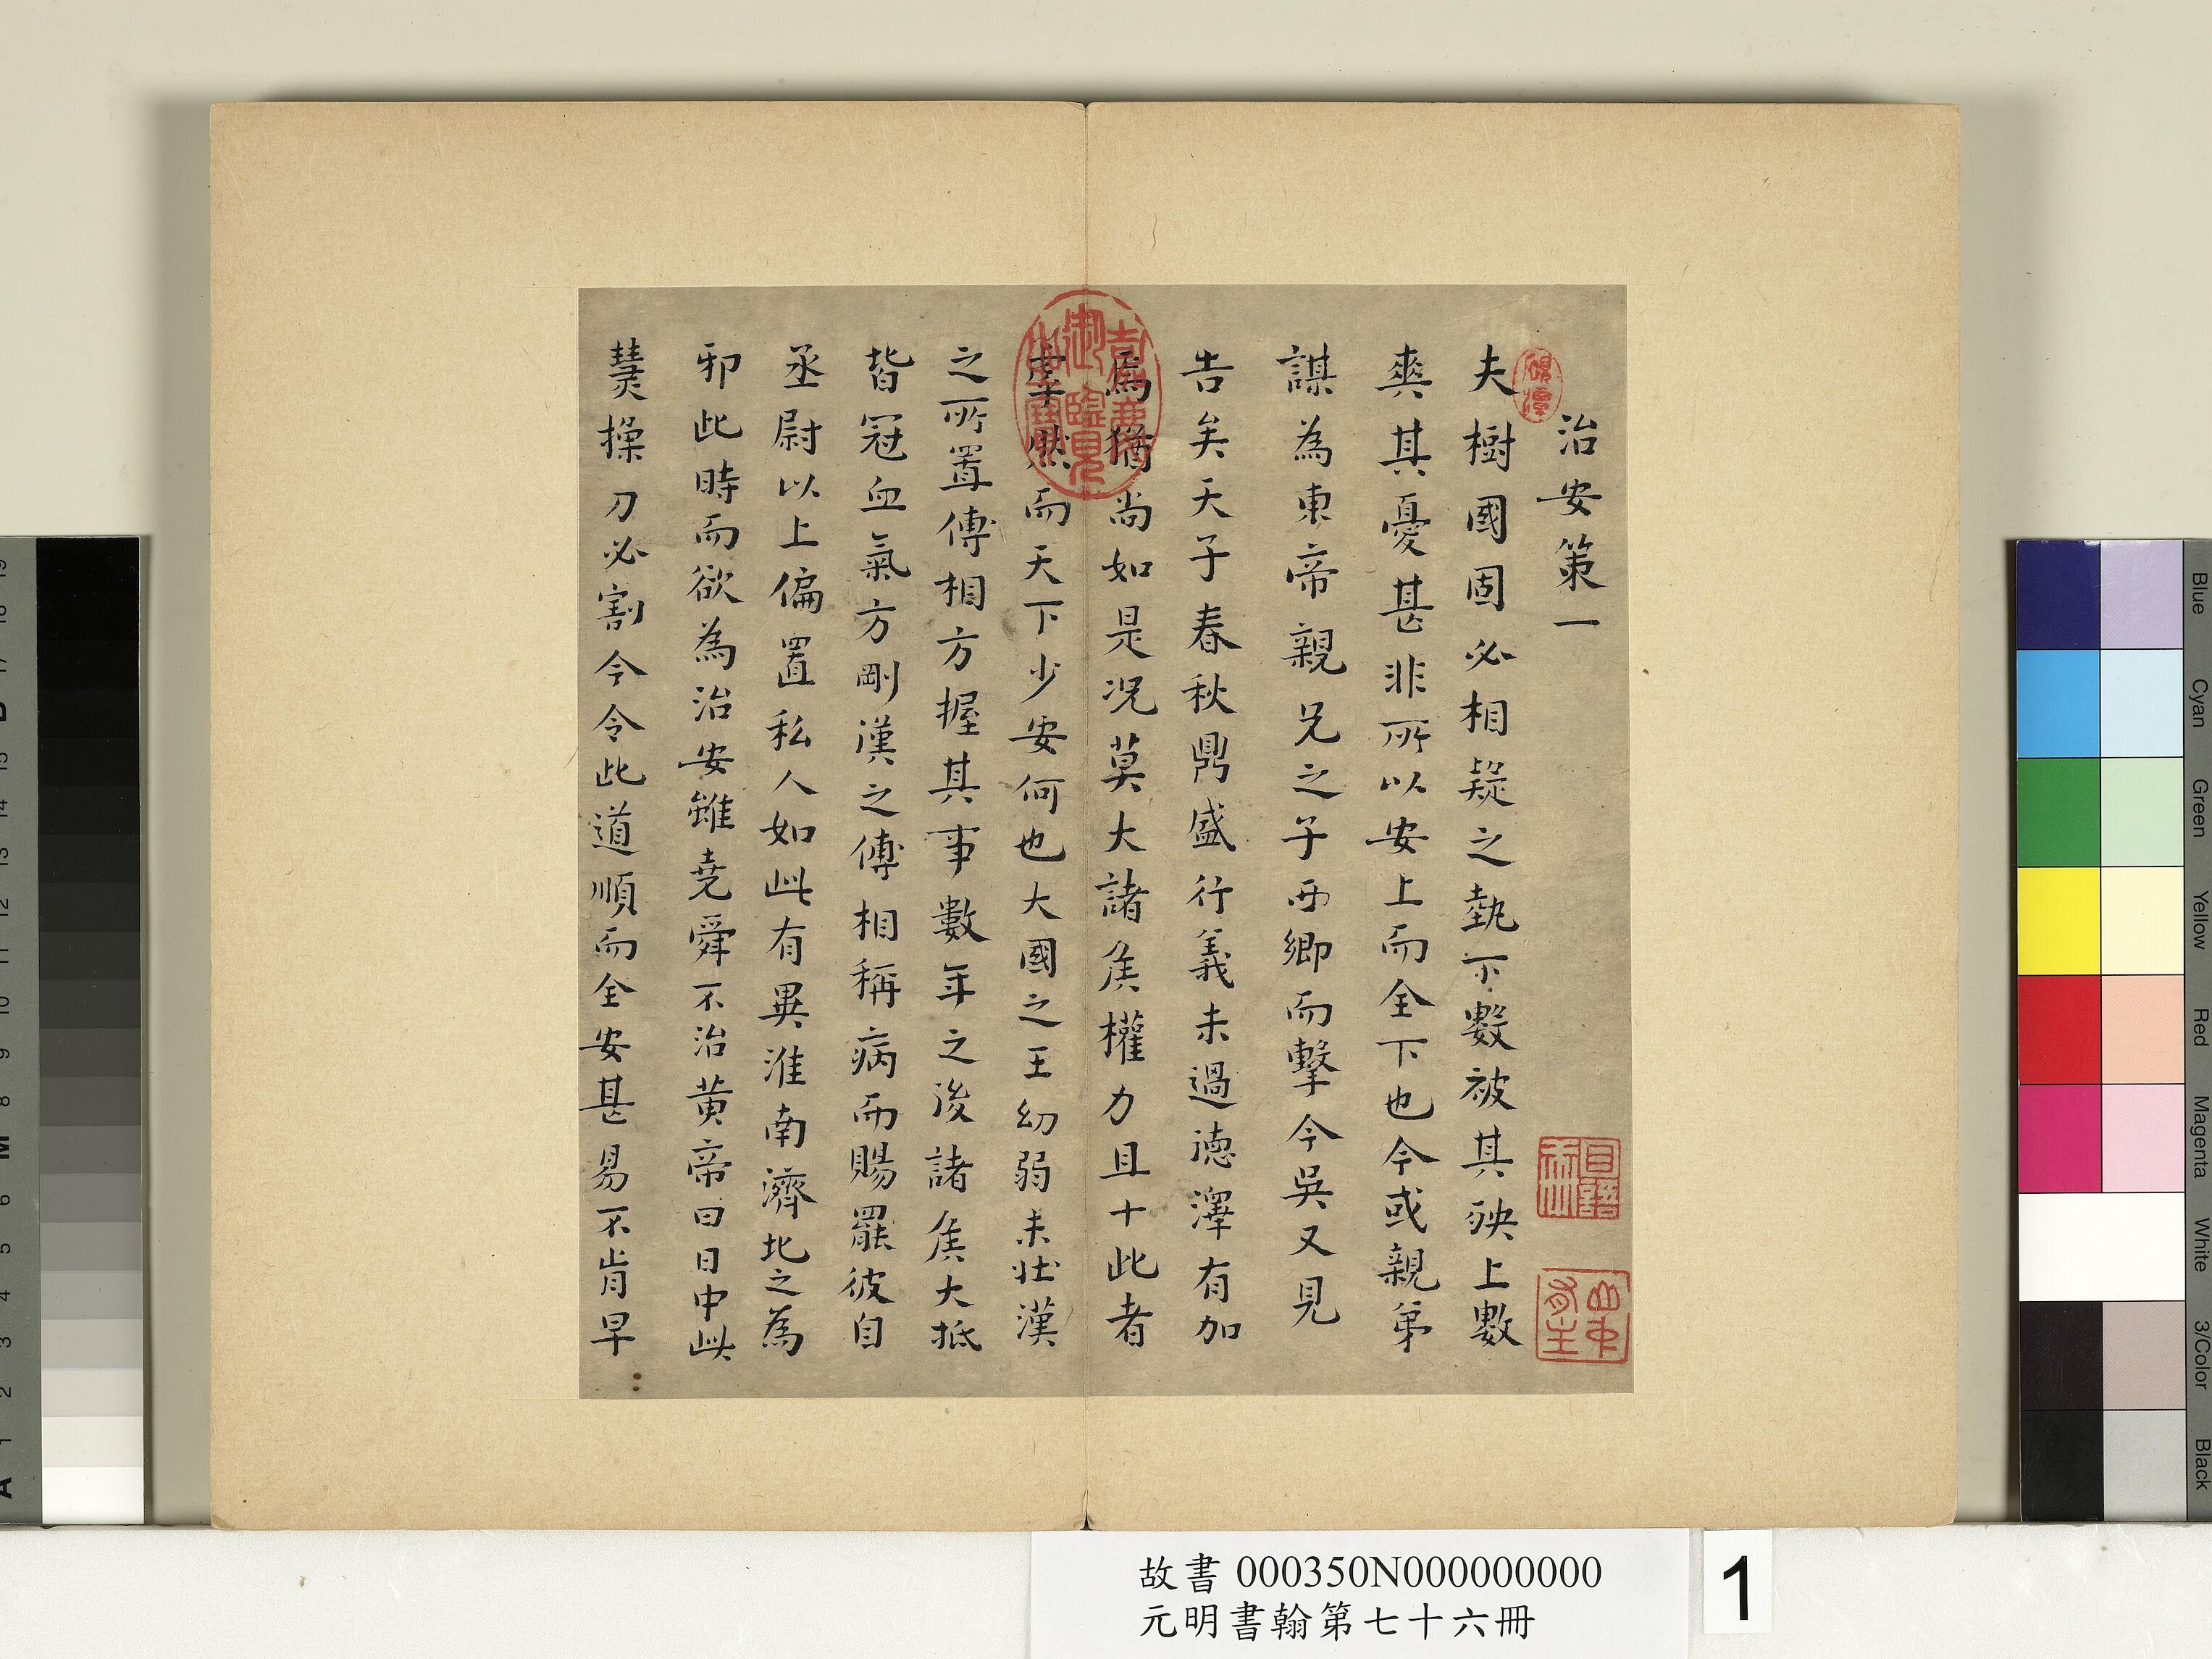 治安策一
夫樹國固必相疑之埶下數被其殃上數
爽其憂甚非所以安上而全下也今或親弟
謀為東帝親兄之子西鄉而擊今吳又見
告矣天子春秋鼎盛行義未過德澤有加
焉猶尚如是況莫大諸侯權力且十此者
虖然而天下少安何也大國之王幼弱未壯漢
之所置傅相方握其事數年之後諸侯大抵
皆冠血氣方剛漢之傅相稱病而賜罷彼自
丞尉以上偏置私人如此有異淮南濟北之為
邪此時而欲為治安雖堯舜不治黃帝曰日中此
熭操刀必割今令此道順而全安甚易不肯早
嘉慶御覽之寶
故書 000350N000000000
元明書翰第七十六冊
1
Blue
Cyan
Green
Yellow
Red
Magenta
White
3/Color
Black